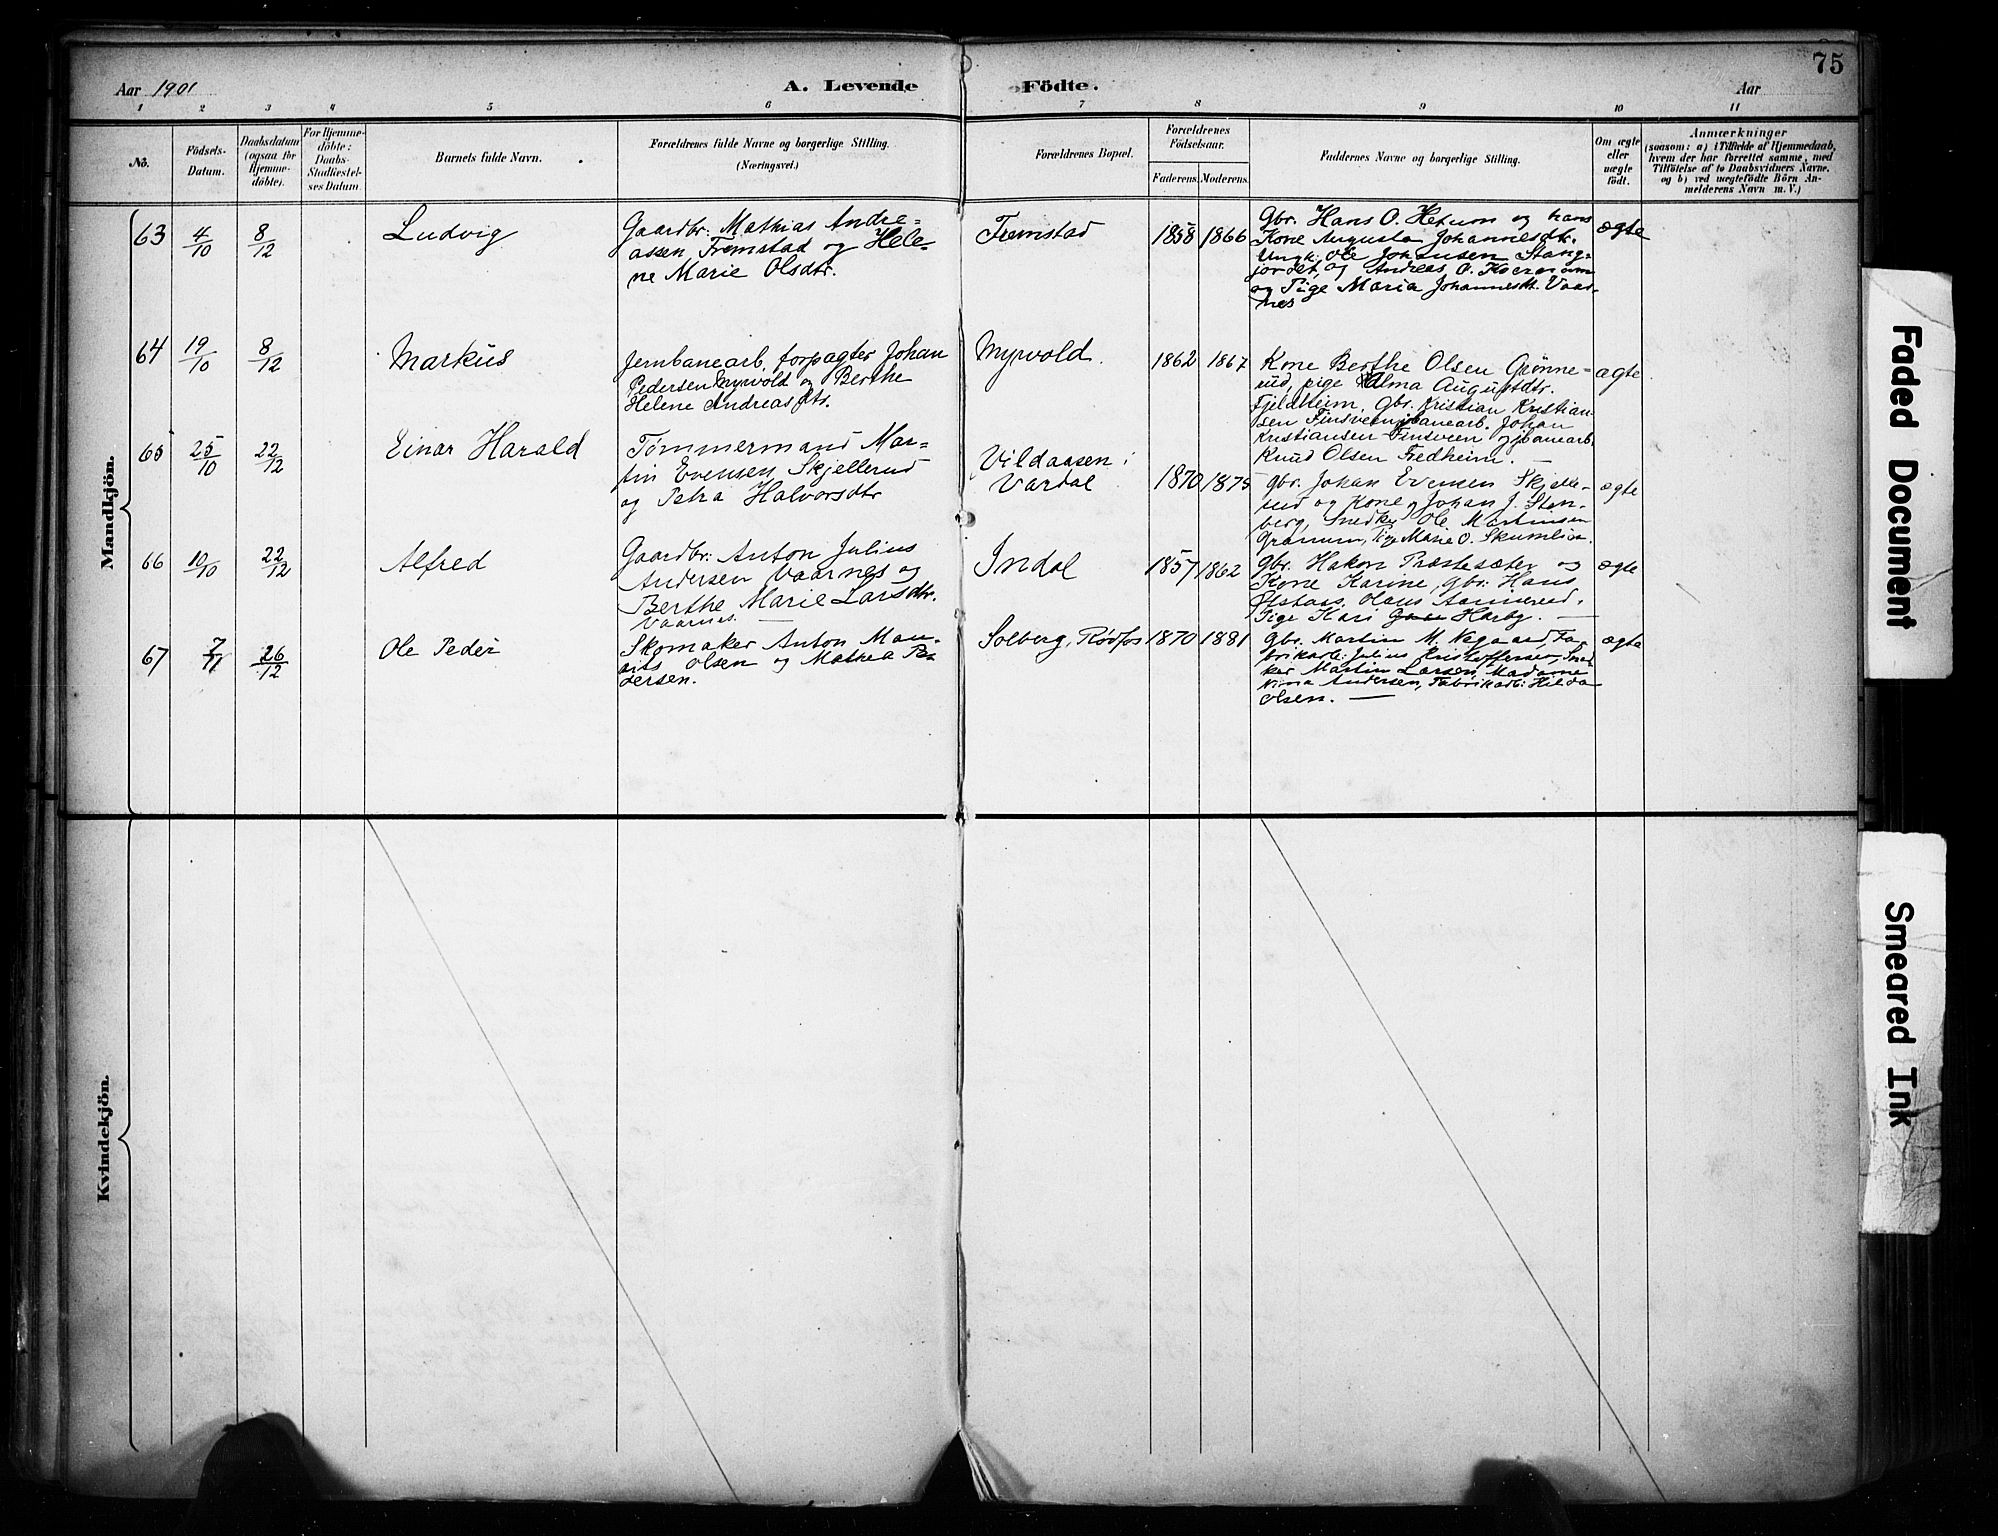 75
Aar 1901
A. Levende Födte.
Aar
1 2 3 4 5 6 7 8 9 10 11
Nô.
Födsels-
Datum.
Daabsdatum
(ogsaa for
Hjemme-
döbte).
For Hjemme-
döbte:
Daabs-
Stadfæstel-
ses Datum.
Barnets fulde Navn.
Forældrenes fulde Navne og borgerlige Stilling.
(Næringsvei.)
Forældrenes Bopæl.
Forældrenes
Födselsaar.
Faderens. Moderens.
Faddernes Navne og borgerlige Stilling.
Om ægte
eller
uægte
födt.
Anmærkninger
(saasom: a) i Tilfælde af Hjemmedaab,
hvem der har forrettet samme, med
Tilföielse af to Daabsvidners Navne.
og b) ved uægtefödte Börn An-
melderens Navn m. V.)
Mandkjön.
63 4/10 8/12 Ludvig
Gaardbr: Mathias Andre=
assen Fremstad og Hele=
ne Marie Olsdtr.
Fremstad 1858 1866
Gbr. Hans O. Hetum og hans
Kone Augusta Johannesdtr.
Ungk. Ole Johansen Stang=
jordet, og Andreas O.
og Pige Maria Johannesdt. Vaar-
nes
ægte
64 19/10 8/12 Markus
Jernbanearb. forpagter Johan
Pedersen Myrvold og Berthe
Helene Andreasdtr.
Myrvold. 1862 1867
Kone Berthe Olsen Grønne-
rud, pige Alma Augustdtr.
Fjeldheim, Gbr. Kristian Kristian
sen Finsveen jbanearb. Johan
Kristiansen Finsveen og jbanearb.
Knud Olsen Fredheim. —
ægte
65 25/10 22/12 Einar Harald
Tømmermand Mar=
tin Evensen Skjellerud
og Petra Halvorsdtr
Vildaasen i
Vardal 1870 1875
gbr. Johan Evensen Skjelle-
rud og Kone, Johan J. Sten-
berg, Snedker Ole Martinsen
Granum, Pige Marie O. Skumlien.
ægte
66 10/10 22/12 Alfred
Gaardbr: Anton Julius
Andersen Vaarnes og
Berthe Marie Larsdtr.
Vaarnes. —
Indal 1857 1862
gbr. Hakon Præstesæter og
Kone Karine, gbr. Hans
Ølstars, Olaus Aannerud,
Pige Kari Harby. —
ægte
67 7/11 26/12 Ole Peder
Skomaker Anton Mau-
rits Olsen og Mathea Pe-
dersen.
Solberg, Rødfos 1870 1881
gbr. Martin M. Negaard, Fa-
brikarb. Julius Kristoffersen, Sned
ker Martin Larsen, Madame
Nina Andersen, Fabrikarb. Hilda
Olsen. —
ægte
Kvindekjön.
Faded Document
Smeared Ink